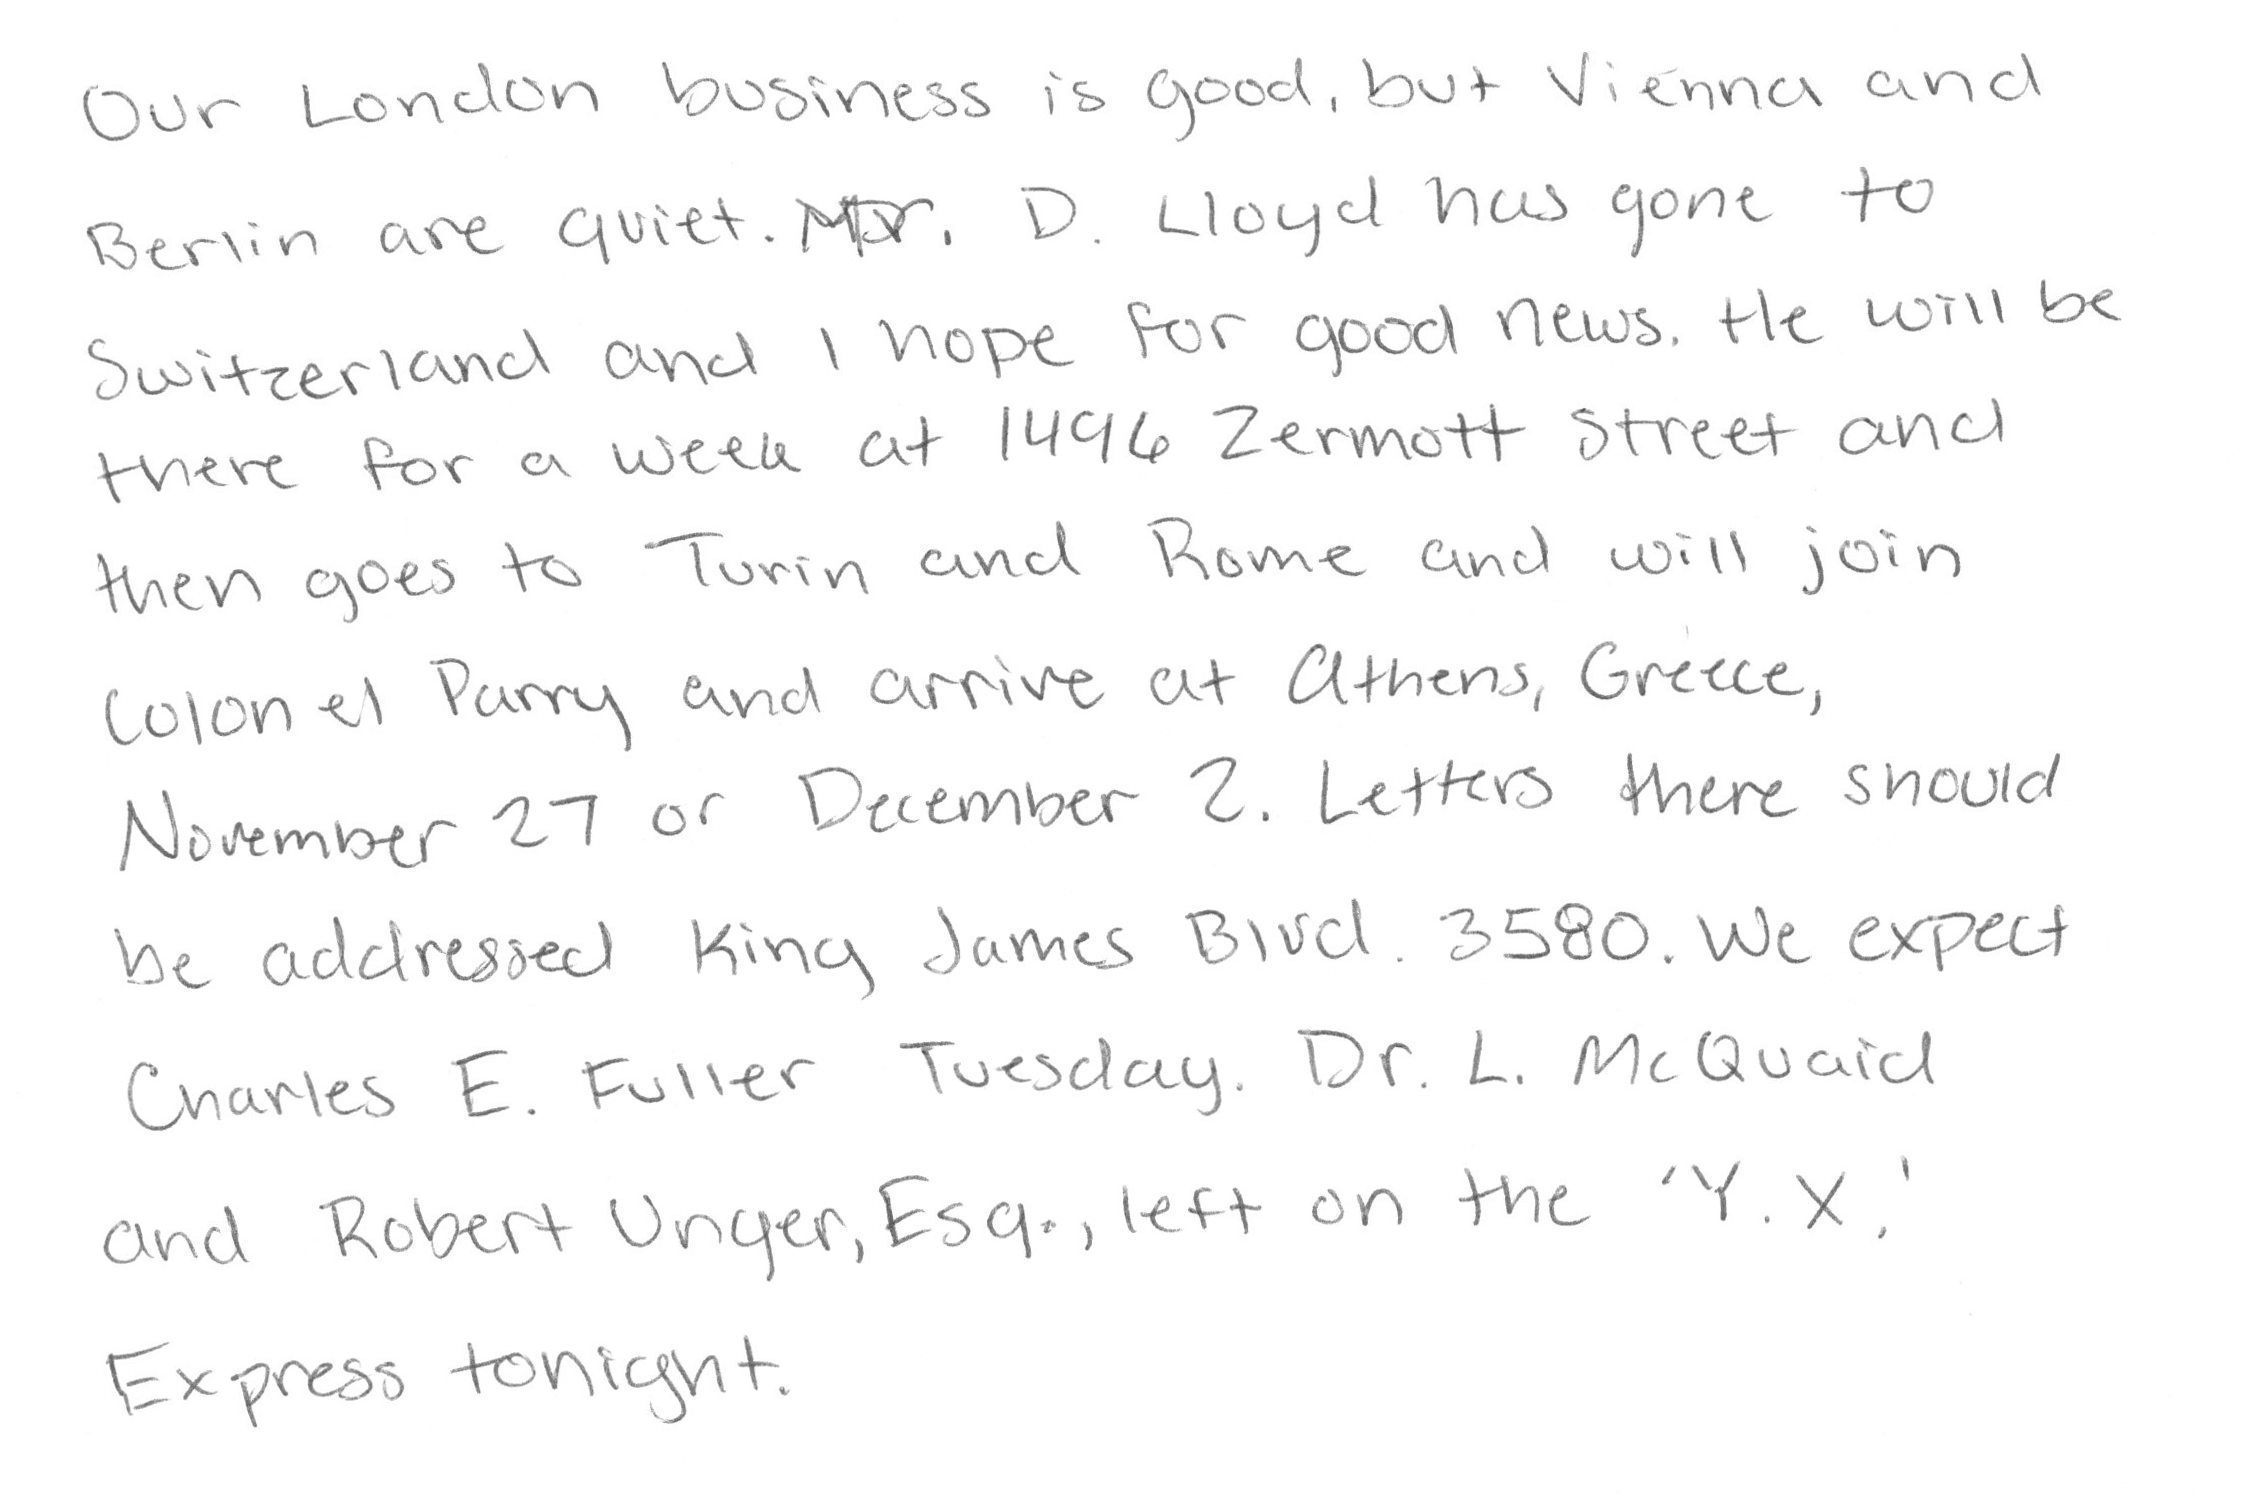 Our London business is good, but Vienna and
Berlin are quiet. Mr. D. Lloyd has gone to
Switzerland and I hope for good news. He will be
there for a week at 1496 Zermott Street and
then goes to Turin and Rome and will join
Colonel Parry and arrive at Athens, Greece,
November 27 or December 2. Letters there should
be addressed King James Blvd. 3580. We expect
Charles E. Fuller Tuesday. Dr. L. McQuaid
and Robert Unger, Esq., left on the 'Y. X,'
Express tonight.